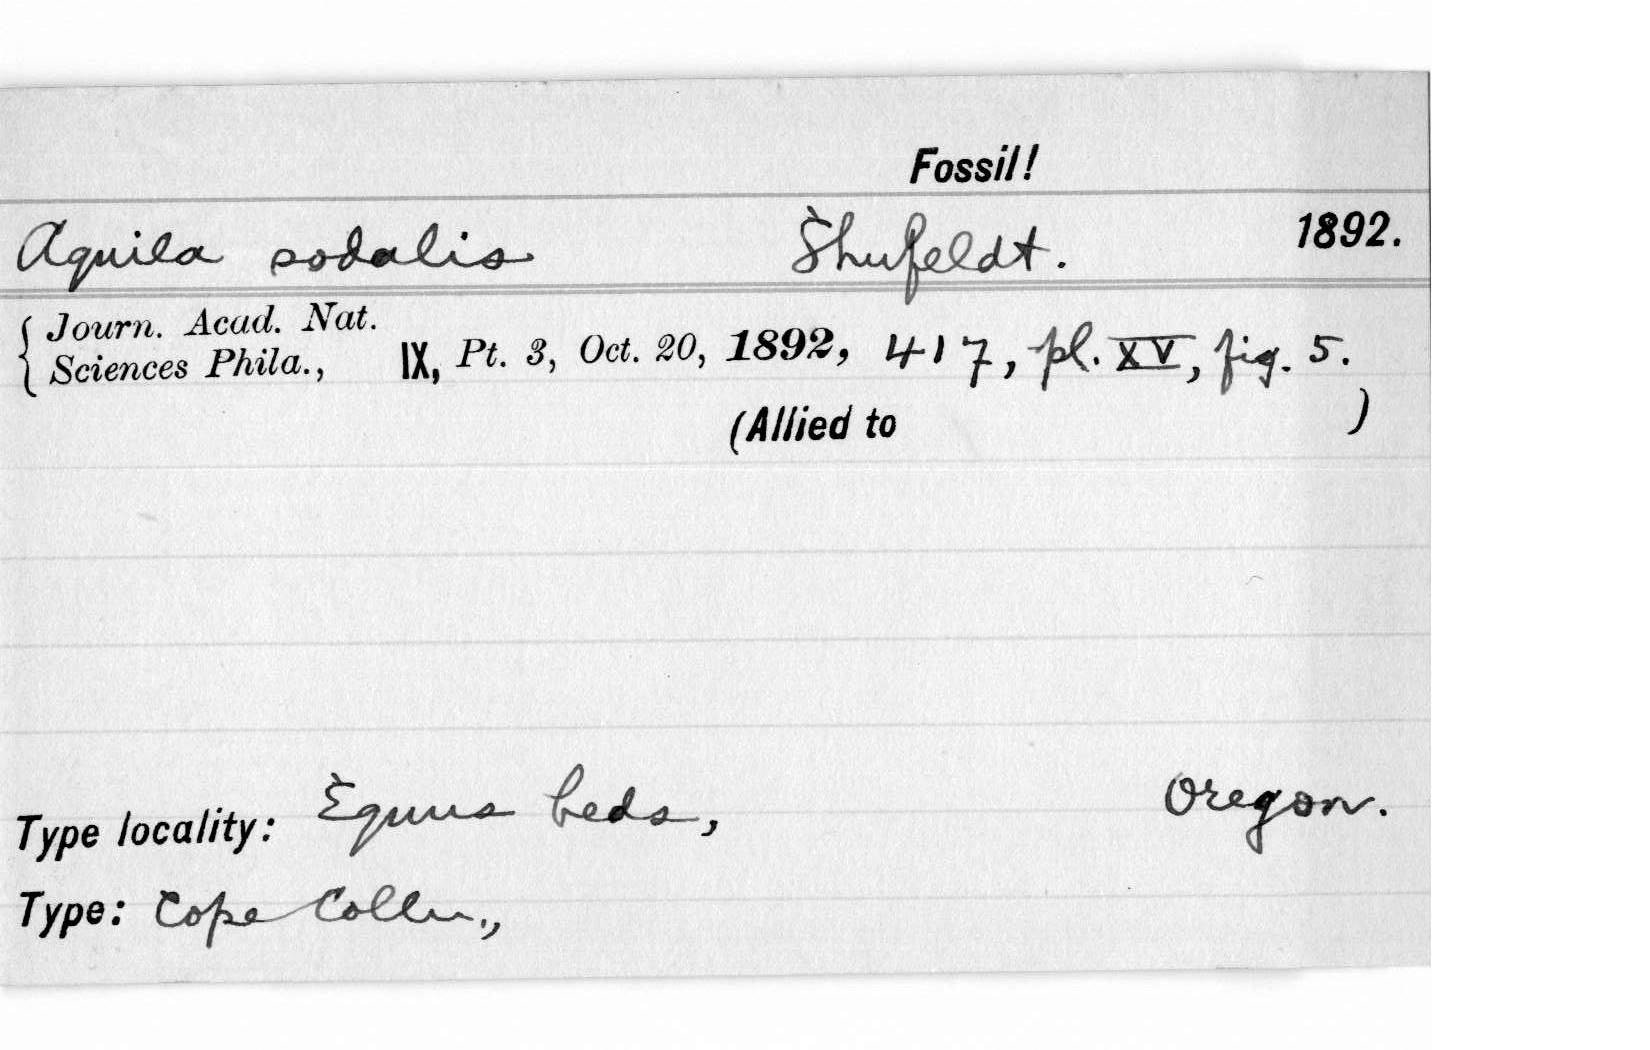 Fossil!
Aquila sodalis Shufeldt. 1892.
Journ. Acad. Nat.
Sciences Phila., IX, Pt. 3, Oct. 20, 1892, 417, pl. XV, fig. 5.
(Allied to )
Type locality: Equus beds, Oregon.
Type: Cope Colln.,